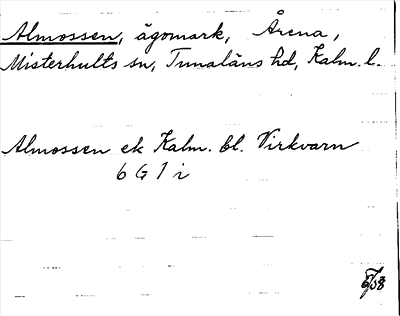 Almossen, ägomark, Århult,
Misterhults sn, Tunaläns hd, Kalm. l.
Almossen ek Kalm. bl. Virkvarn
6 G 1 i